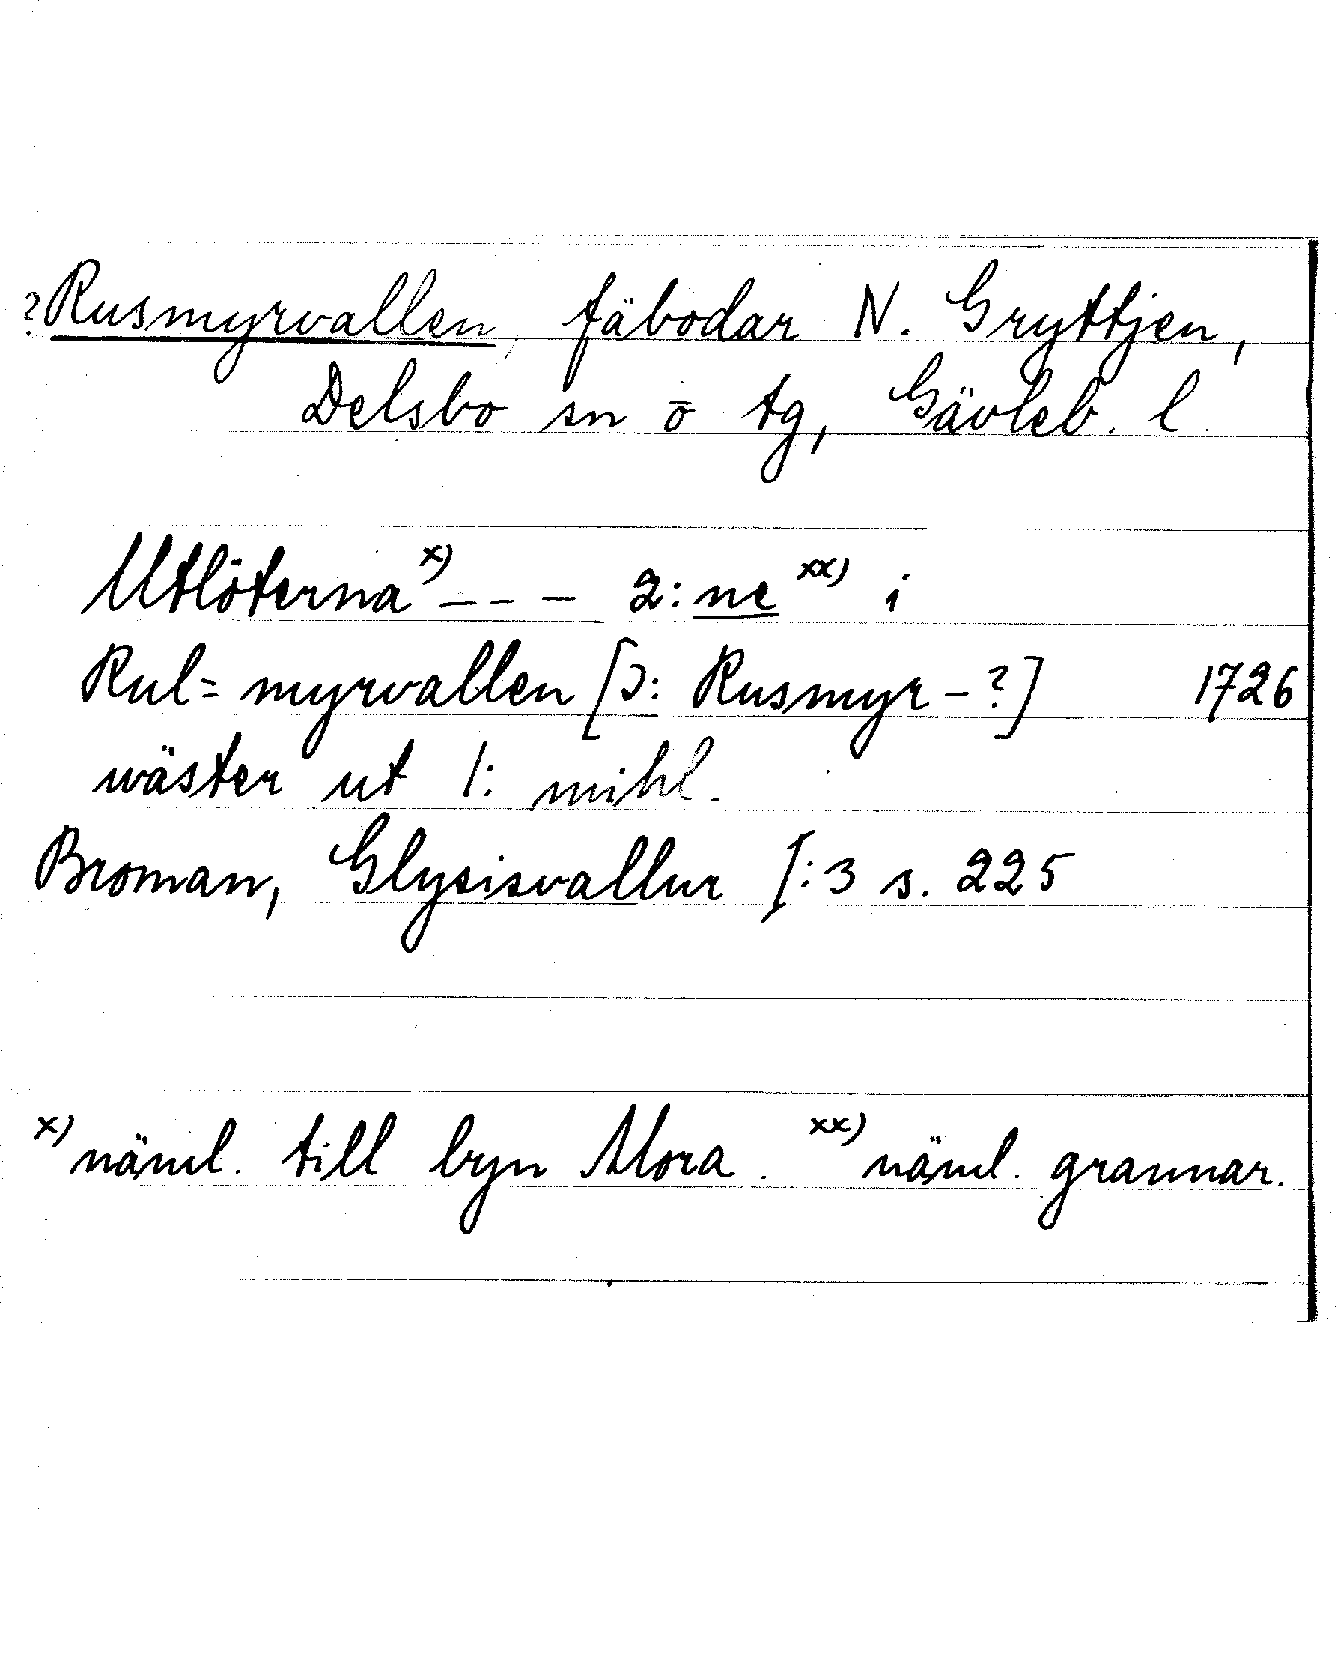 ?Rusmyrvallen, fäbodar N. Gryttjen,
Delsbo sn o tg, Gävleb. l.
Utlöterna x) --- 2:ne xx) i
Rul= myrvallen [ɔ: Rusmyr-?] 1726
wäster ut 1: mihl.
Broman, Glysisvallur I:3 s. 225
x) näml. till byn Mora. xx) näml. grannar.